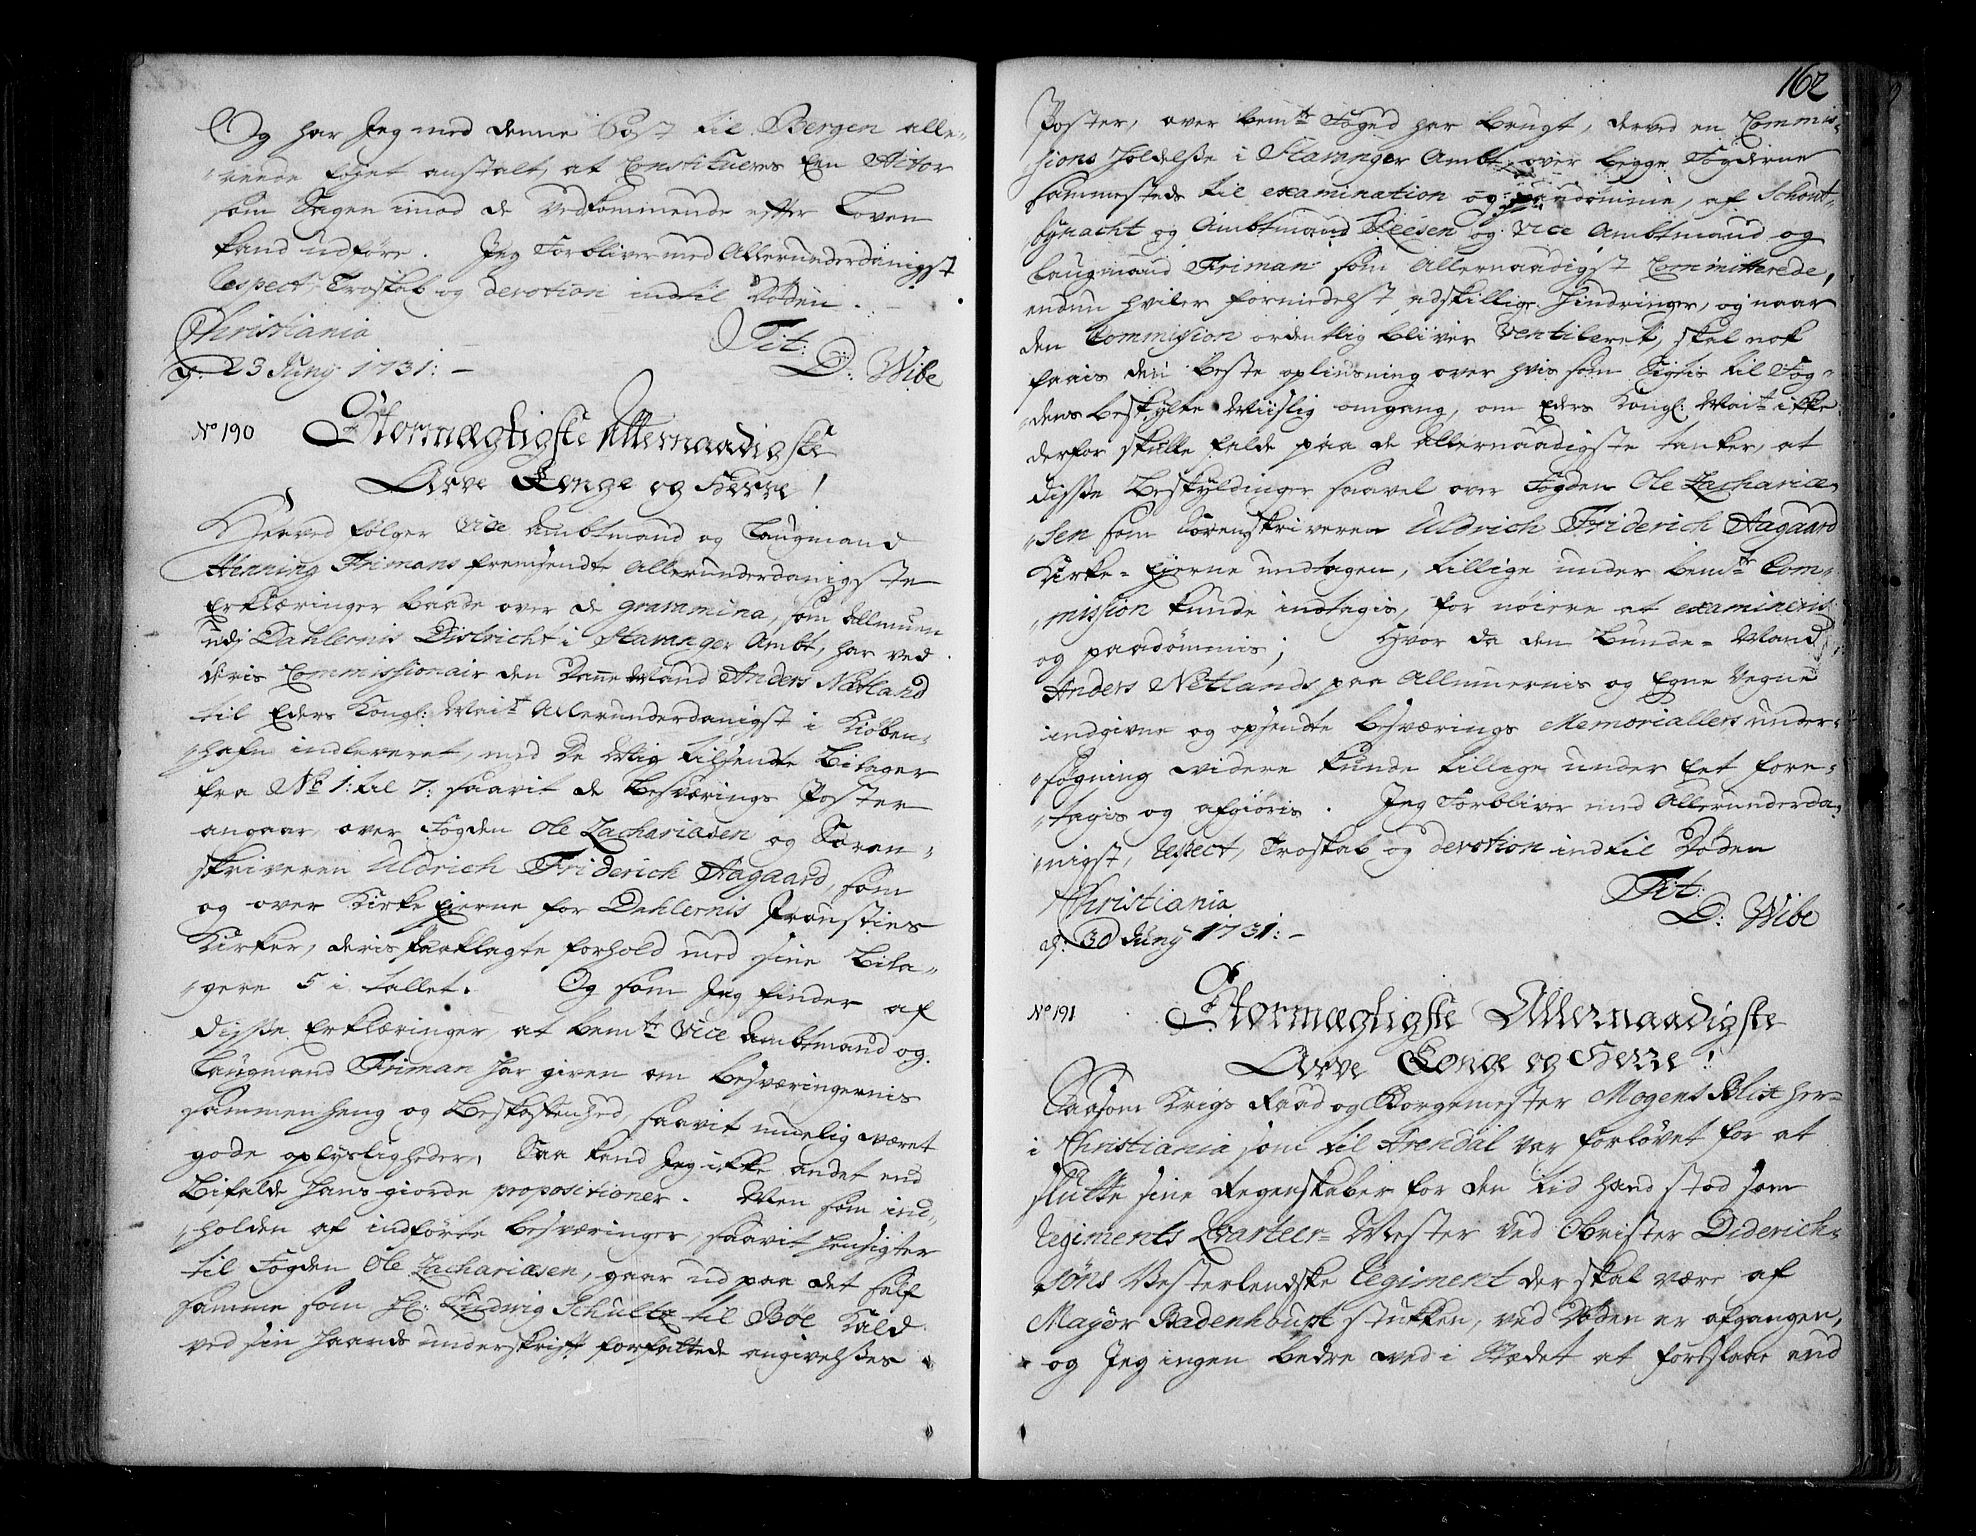 Og har Jeg med denne Post til Bergen alle-
reede føyet anstalt, at Constitueres Een Actor
som Sagen imod de Vedkommende efter Loven
kand udføre. Jeg Forbliver med Allerunderdanigst
Respect, Troskab og devotion indtil Døden.
Christiania
d: 23 Juny 1731:
Tit:
D: Wibe
No 190
Stormægtigste Allernaadigste
Arve Konge og Herre!
Herved følger Vice Ambtmand og Laugmand
Henning Frimans fremsendte Allerunderdanigste
Erklæringer baade over de gravamina, som Allmuen
udj Dahlernis District i Stavanger Ambt, har ved
deris Commissionair den Danne Mand Anders Nætland
til Eders Kongl: Mait Allerunderdanigst i Kiøben-
hafn indleveret, med De Mig tilsendte Bilager
fra No 1: til 7: saavit de Besværings Poster
angaar over Fogden Ole Zachariasen og Soren-
skriveren Uldrich Friderich Aagaard, som
og over Kirke Ejerne for Dahlernis Prousties
Kirker, deris paaklagte forhold med sine Bila-
gere 5 i tallet. Og som Jeg finder af
disse Erklæringer at bemte Vice Ambtmand og
Laugmand Friman har given om besværingernis
sammenheng og Beskaffenhed, saavit muelig været
gode oplysligheder, Saa kand Jeg ikke andet end
Bifalde hans giorde propositioner. Men som ind-
holden af indførte besværinger, saavit hensigter
til Fogden Ole Zachariæsen, gaar ud paa det self
samme som Hr: Ludwig Schultz til Bøe Kald
ved sin haands underskrift forfattede angivelses
162
Poster, over bemte Foged har brugt, derved en Commis-
sions holdelse i Stavanger Ambt over begge Fogderne
sammesteds til examination og paadømme, af Schout-
bynacht og Ambtmand Reesen og Vice Ambtmand og
Laugmand Friman som Allernaadigst Committerede,
endnu hviler formedelst adskillige hindringer, og naar
den Commission ordentlig bliver Ventileret, skal nok
faais den beste oplysning over hvis som Sigtis til Fog-
dens beskyldte Wiislig omgang, om Eders Kongl: Mait ikke
derfor skulle falde paa de Allernaadigste tanker, at
disse Beskyldinger saavel over Fogden Ole Zachariæ-
sen som Sorenskriveren Uldrich Friderich Aagaard
Kirke-Ejerne undtagen, tillige under bemte Com-
mission kunde indtagis, for nøiere at examineris
og paadømmis; Hvor da den Bunde-Mand
Anders Netlands paa Allmuernis og Egne Vegne
indgivne og opsendte besværings Memoriallers under-
søgning videre kunde tillige under Eet fore-
tagis og afgiøris. Jeg Forbliver med Allerunderda-
nigst, Respect, Troskab og devotion indtil Døden
Christiania
d: 30 Juny 1731:
Tit:
D: Wibe
No 191
Stormægtigste Allernaadigste
Arve Konge og Herre!
Saasom Krigs Raad og Borgemester Mogens Blix her-
i Christiania som til Arendal var forløvet for at
slutte sine Regenskaber for den tid hand stod som
Regiments Qvarteer-Mester ved Obrister Diderich-
søns Vesterlendske Regiment der skal være af
Mayor Badenhoupt stukken, ved Døden er afgangen,
og Jeg ingen bedre ved i Stædet at foreslaae end